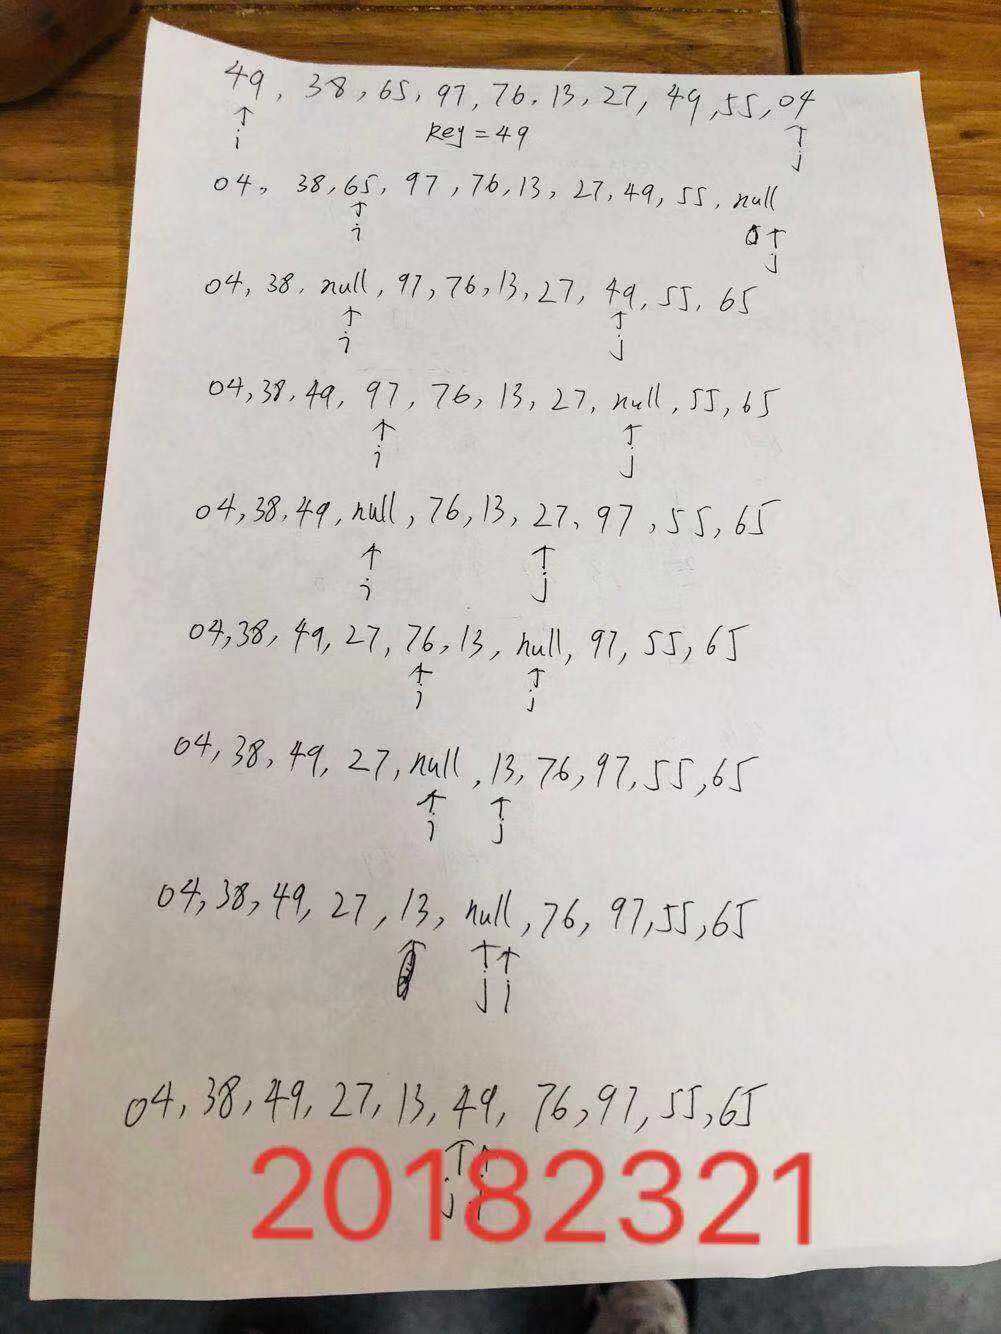 49, 38, 65, 97, 76, 13, 27, 49, 55, 04
i key=49 j
04, 38, 65, 97, 76, 13, 27, 49, 55, null
i j
04, 38, null, 97, 76, 13, 27, 49, 55, 65
i j
04, 38, 49, 97, 76, 13, 27, null, 55, 65
i j
04, 38, 49, null, 76, 13, 27, 97, 55, 65
i j
04, 38, 49, 27, 76, 13, null, 97, 55, 65
i j
04, 38, 49, 27, null, 13, 76, 97, 55, 65
i j
04, 38, 49, 27, 13, null, 76, 97, 55, 65
j i
04, 38, 49, 27, 13, 49, 76, 97, 55, 65
j i
20182321